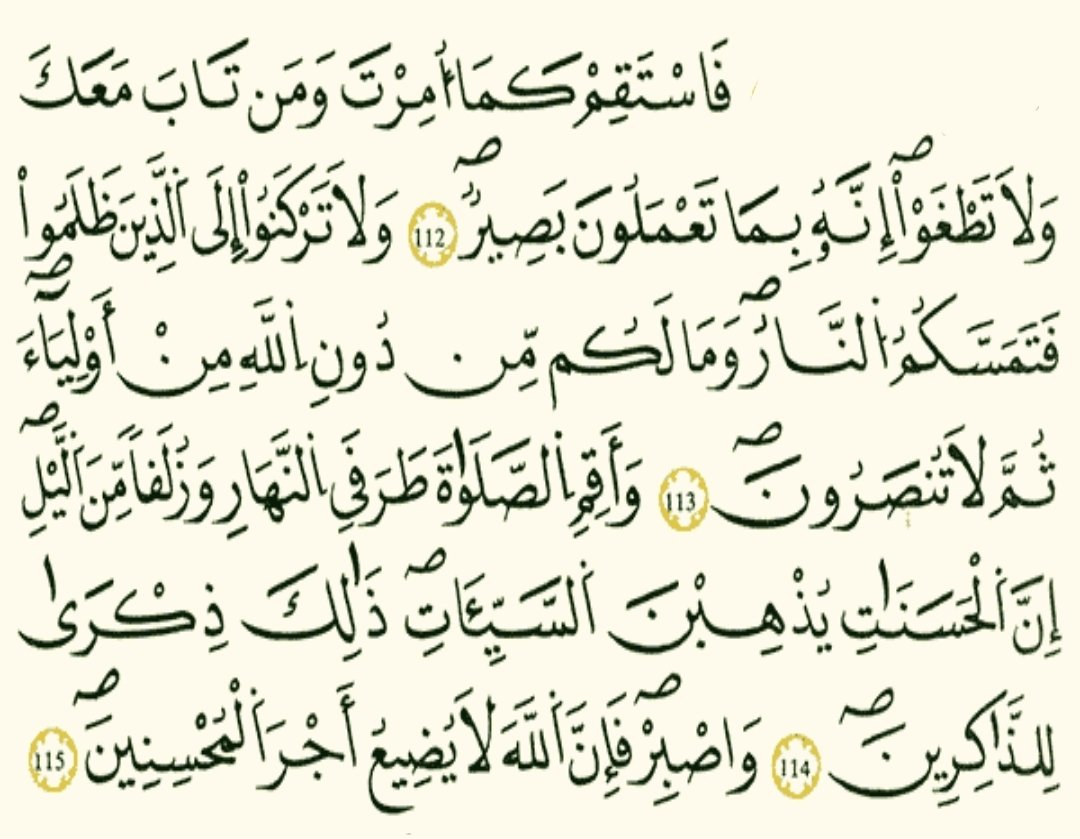 فَاسْتَقِمْ كَمَا أُمِرْتَ وَمَن تَابَ مَعَكَ
وَلَا تَطْغَوْاْ إِنَّهُۥ بِمَا تَعْمَلُونَ بَصِيرٌ 112 وَلَا تَرْكَنُواْ إِلَى اَ۬لذِينَ ظَلَمُواْ
فَتَمَسَّكُمُ اُ۬لنَّارُ وَمَا لَكُم مِّن دُونِ اِ۬للَّهِ مِنْ أَوْلِيَآءَ
ثُمَّ لَا تُنصَرُونَ 113 وَأَقِمِ اِ۬لصَّلَوٰةَ طَرَفَيِ اِ۬لنَّهَارِ وَزُلَفاً مِّنَ اَ۬لَّيْلِ
إِنَّ اَ۬لْحَسَنَٰتِ يُذْهِبْنَ اَ۬لسَّيِّـَٔاتِ ذَٰلِكَ ذِكْرَىٰ
لِلذَّاكِرِينَ 114 وَاصْبِرْ فَإِنَّ اَ۬للَّهَ لَا يُضِيعُ أَجْرَ اَ۬لْمُحْسِنِينَ 115